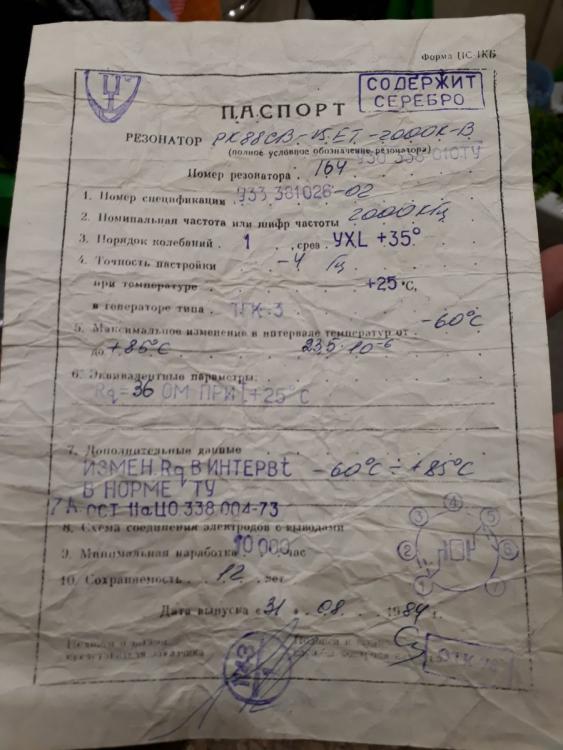 Форма ЦС-1КБ
СОДЕРЖИТ
СЕРЕБРО
ПАСПОРТ
РЕЗОНАТОР РК88СВ-15.ЕТ-2000К-В
(полное условное обозначение резонатора)
УЭ0 338 010ТУ
Номер резонатора 164
1. Номер спецификации УЭЗ 381028-02
2. Номинальная частота или шифр частоты 2000кГц
3. Порядок колебаний 1 , срез УXL +35°
4. Точность настройки -4 Гц
при температуре +25 °С,
в генераторе типа ПГК-3
5. Максимальное изменение в интервале температур от -60°С
до +85°С 235·10-6
6. Эквивалентные параметры:
Rq=36 ОМ ПРИ t+25°С
7. Дополнительные данные
ИЗМЕН.Rq В ИНТЕРВ t -60°С ÷ +85°С
В НОРМЕ ТУ
7А ОСТ 11аЦО 338 004-73
8. Схема соединения электродов с выводами
1 2 3 4 5 6 7
9. Минимальная наработка 10 000 час
10. Сохраняемость 12 лет
Дата выпуска «31» 08. 1984 г.
представителя заказчика